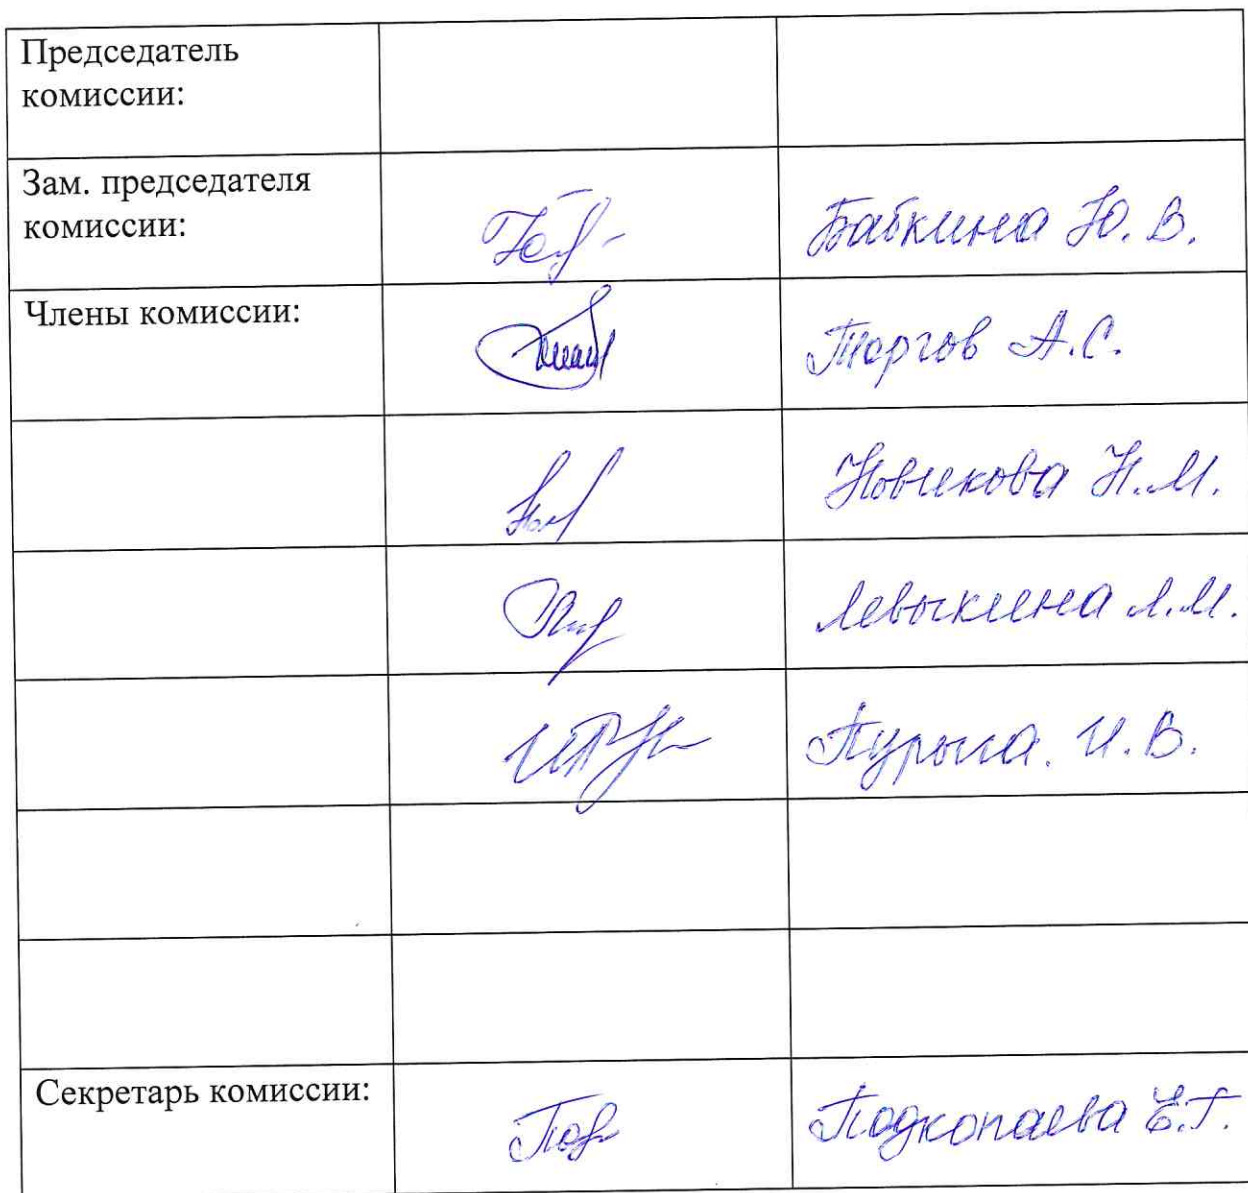 Председатель
комиссии:
Зам. председателя
комиссии:
Бабкина Ю. В.
Члены комиссии:
Торгов А.С.
Новикова Н.М.
Левыкина Л.М.
И.В.
Секретарь комиссии:
Подкопаева Е.Г.